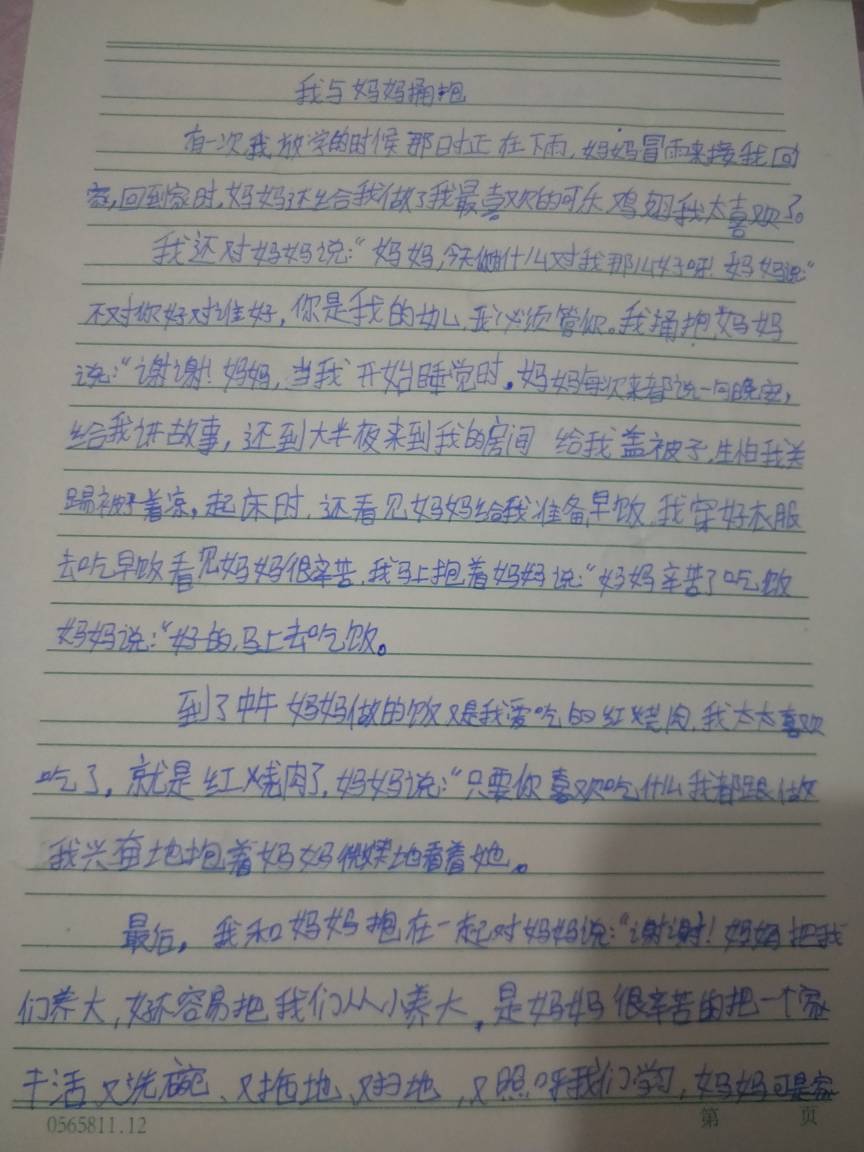 我与妈妈捅抱
有一次,我放学的时候那日时正在下雨,妈妈冒雨来接我回
家,回到家时,妈妈还给我做了我最喜欢的可乐鸡翅我太喜欢了。
我还对妈妈说:“妈妈,今天做什么对我那么好呀!妈妈说:“
不对你好对谁好,你是我的幼儿,我必须管你。我捅抱妈妈
说:“谢谢!妈妈,当我开始睡觉时,妈妈每次来都说一句晚安,
给我讲故事,还到大半夜来到我的房间 给我盖被子,生怕我
踢被子着凉。起床时,还看见妈妈给我准备早饭,我穿好衣服
去吃早饭看见妈妈很辛苦,我马上抱着妈妈说:“妈妈辛苦了吃饭
妈妈说:“好的,马上去吃饭。
到了中午妈妈做的饭又是我爱吃的红烧肉,我太太喜欢
吃了,就是红烧肉了,妈妈说:“只要你喜欢吃什么我都跟做
我兴奋地抱着妈妈微笑地看着她。
最后,我和妈妈抱在一起对妈妈说:“谢谢!妈妈把我
们养大,好不容易把我们从小养大,是妈妈很辛苦的把一个家
干活又洗碗、又拖地、又扫地,又照呼我们学习,妈妈可是家
0565811.12
第 页